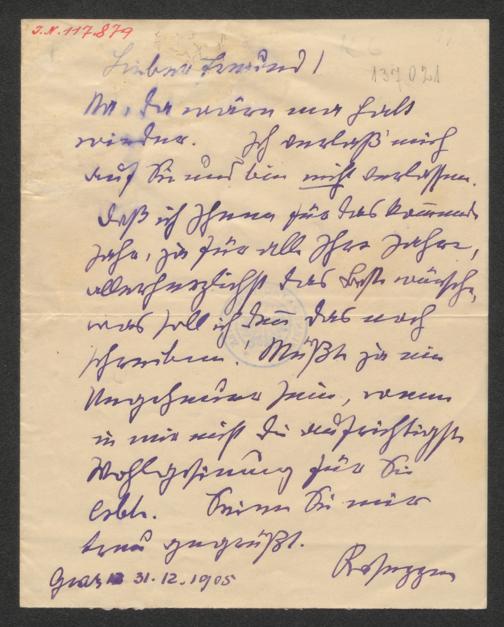 I.N. 117.879
137021
Lieber Freund!
Na, da wären ma halt
wieder. Ich verlaß mich
auf Sie und bin nicht verlassen.
Daß ich Ihnen für das kommende
Jahr, ja für alle Ihre Jahre,
allerherzlichst das Beste wünsche,
was soll ich denn das noch
schreiben! Müßte ja ein
Ungeheuer sein, wenn
in mir nicht die aufrichtigste
Wohlgesinnung für Sie
lebte. Seien Sie mir
treu gegrüßt.
Rosegger
Graz 31.12.1905